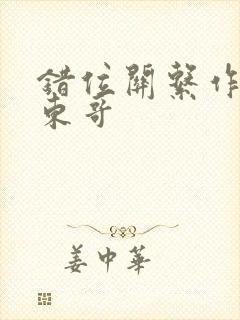 錯位關繫作
東哥
姜中華